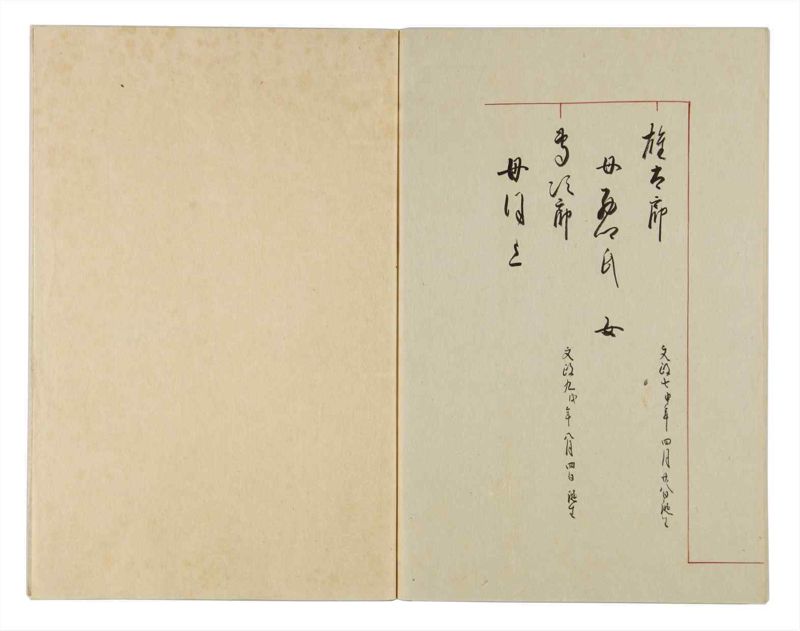 雄太郎
文政七申年 四月廿八日誕生
母 氏 女
次郎
文政九戌年 八月四日誕生
母同上